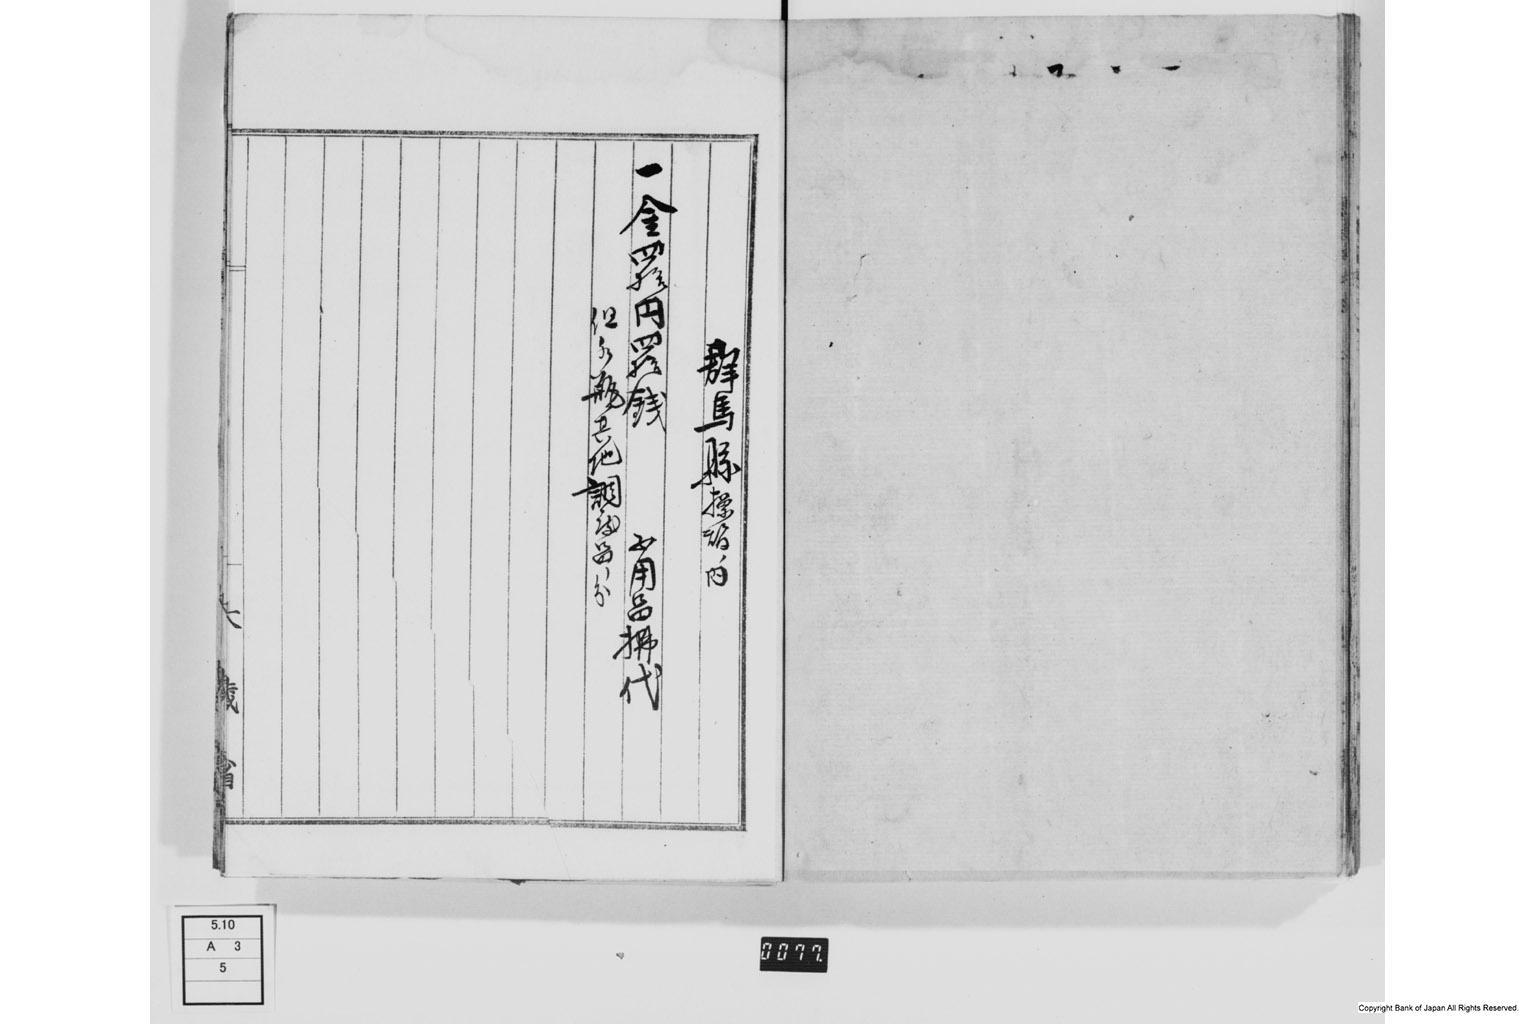 群馬縣操詰内
一金四拾円四拾銭 不用品拂代
但水瓶其他調物品ノ分
大蔵省
5.10
A 3
5
0077.
Copyright Bank of Japan All Rights Reserved.